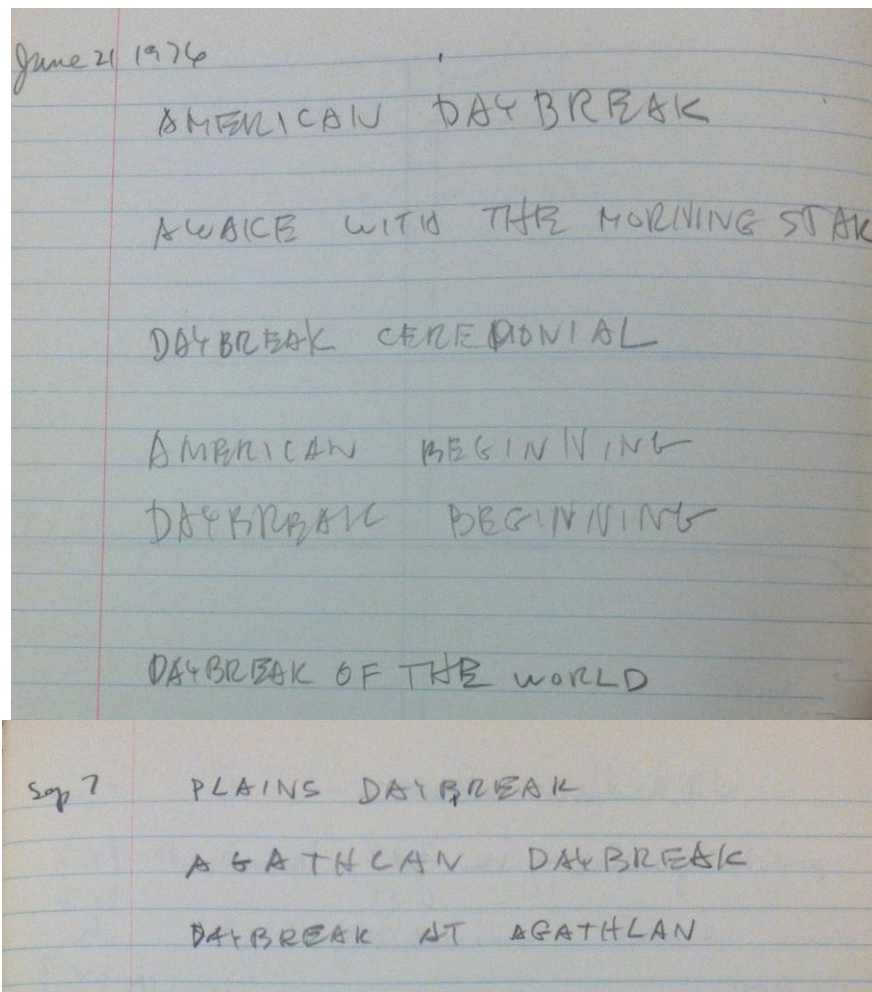 June 21 1976
AMERICAN DAYBREAK
AWAKE WITH THE MORNING STAR
DAYBREAK CEREMONIAL
AMERICAN BEGINNING
DAYBREAK BEGINNING
DAYBREAK OF THE WORLD
Sep 7 PLAINS DAYBREAK
AGATHLAN DAYBREAK
DAYBREAK AT AGATHLAN